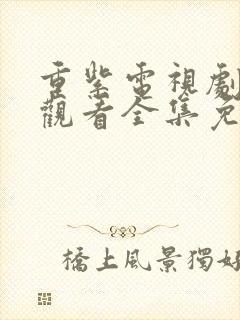 重紫電視劇
觀看全集免
橋上風景獨好